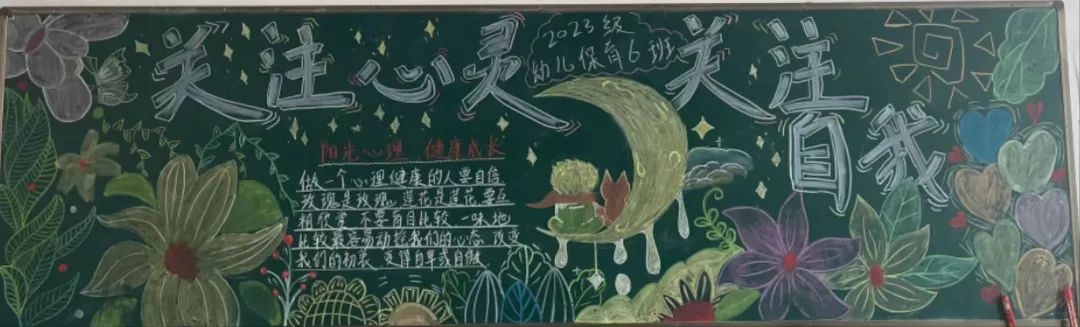 关注心灵 关注自我
2023级
幼儿保育6班
阳光心理 健康成长
做一个心理健康的人要自信
玫瑰是玫瑰 莲花是莲花 要互
相欣赏 不要盲目比较 一味地
比较最容易动摇我们的心态 改变
我们的初衷 变得自卑或自傲